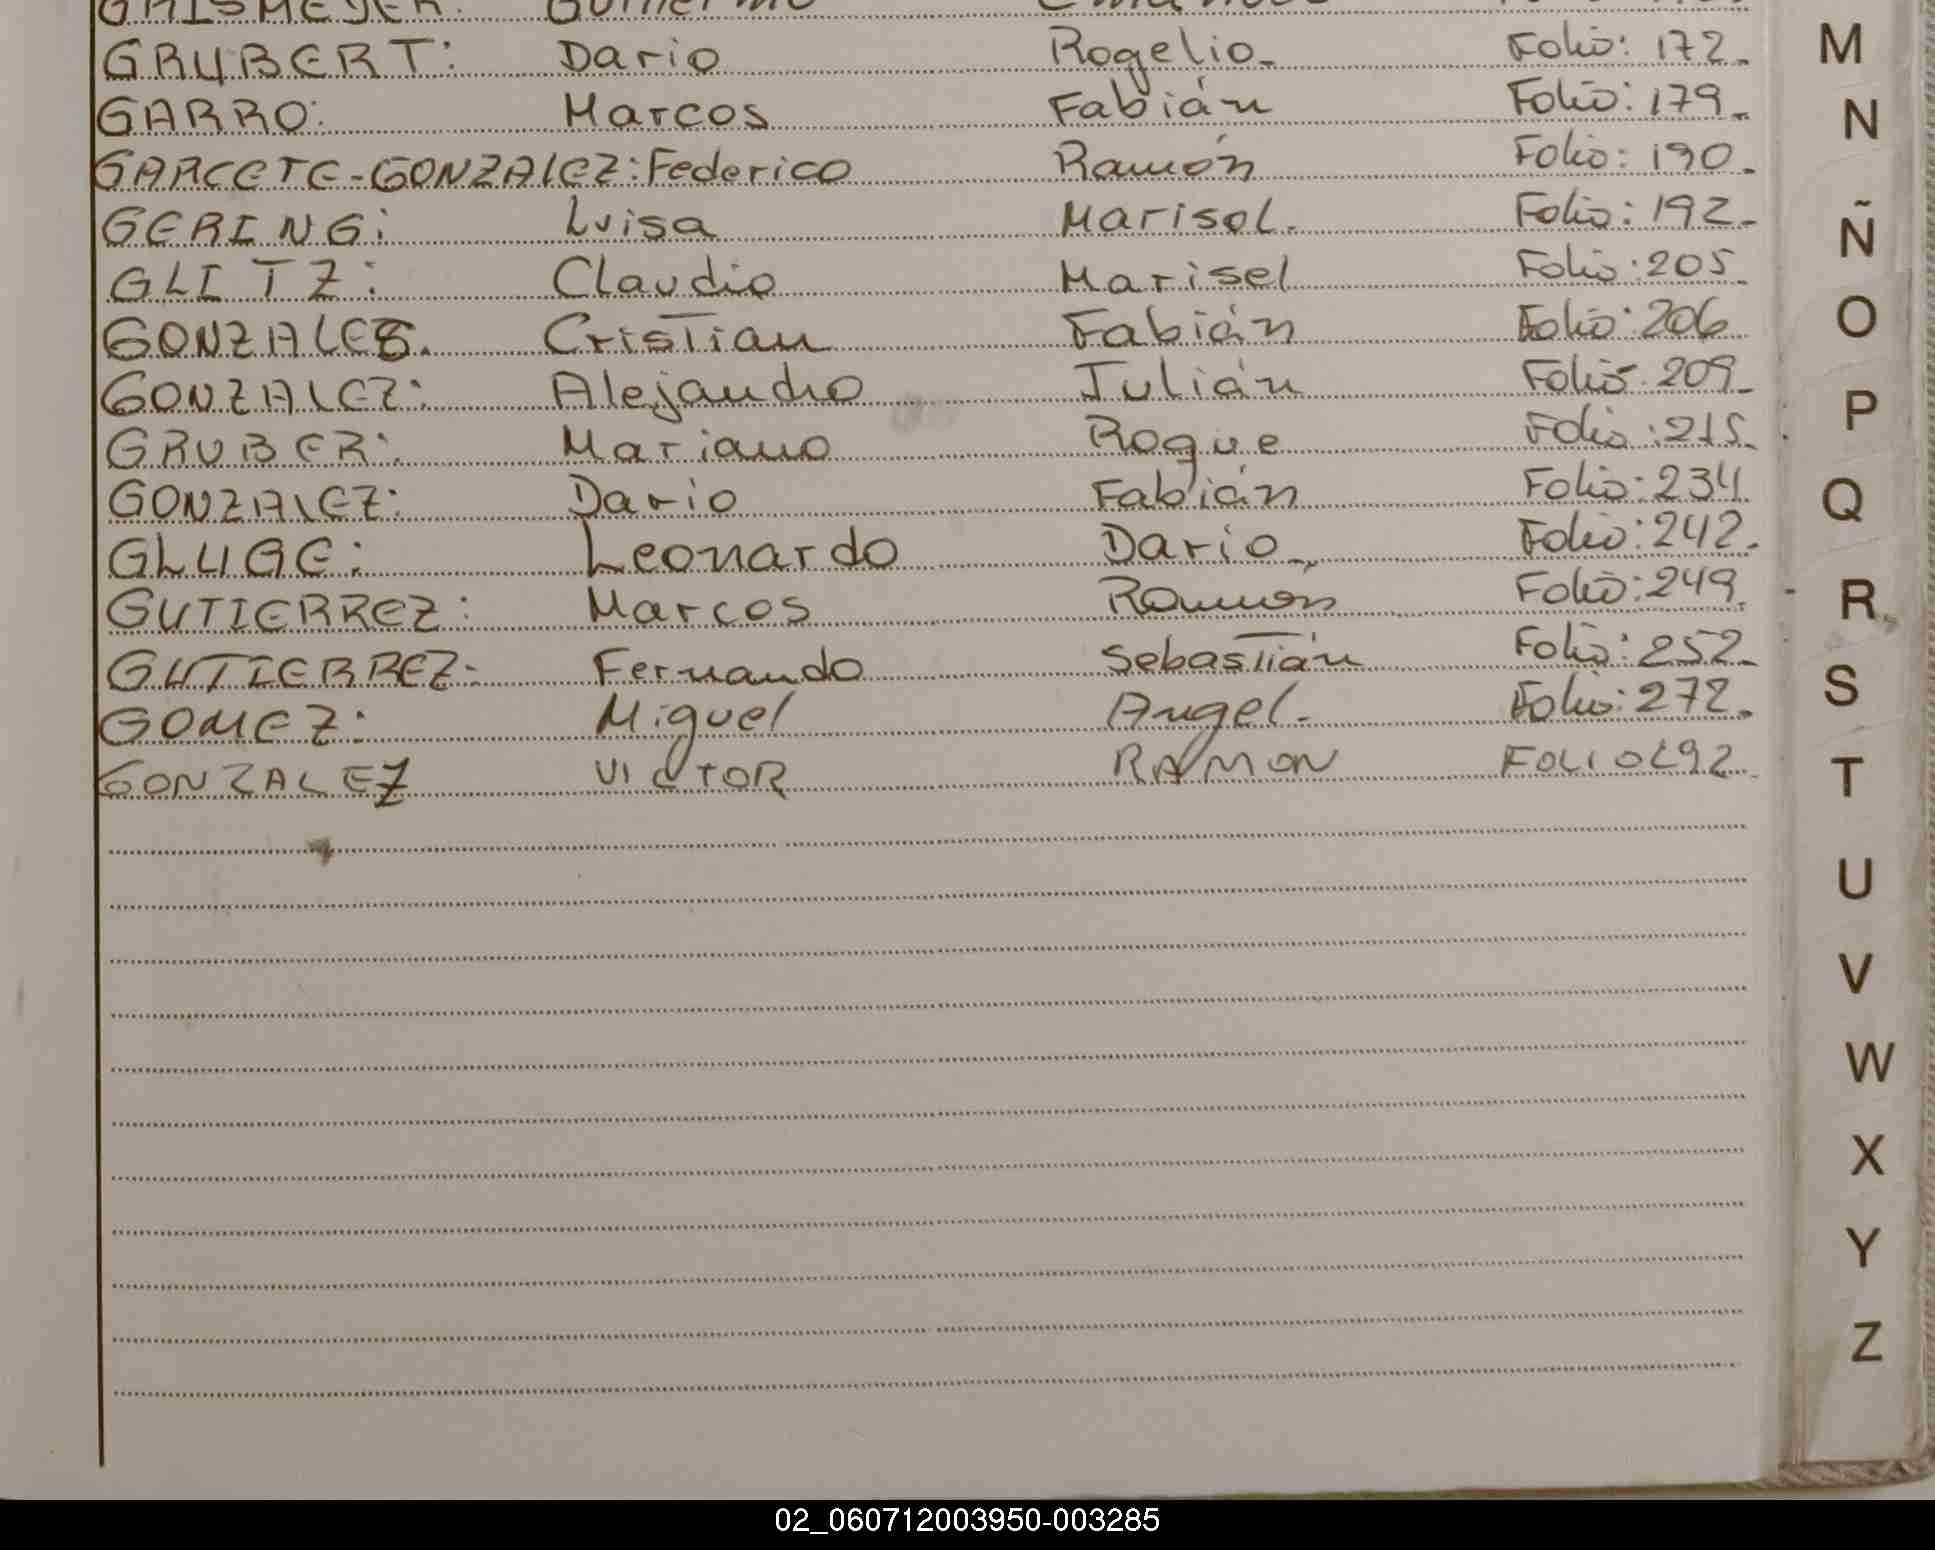 GRUBERT: Dario Rogelio. Folio: 172.
GARRO: Marcos Fabián Folio: 179.
GARCETE-GONZALEZ: Federico Ramón Folio: 190.
GERING: Luisa Marisol. Folio: 192.
GLITZ: Claudio Marisel Folio: 205.
GONZALES. Cristian Fabián Folio: 206
GONZALEZ: Alejandro Julián Folio: 209.
GRUBER: Mariano Roque Folio: 215.
GONZALEZ: Dario Fabián Folio: 234
GLUGE: Leonardo Dario. Folio: 242.
GUTIERREZ: Marcos Ramón Folio: 249.
GUTIERREZ: Fernando Sebastián Folio: 252.
GOMEZ: Miguel Angel. Folio: 272.
GONZALEZ VICTOR RAMON FOLIO 292
M
N
Ñ
O
P
Q
R
S
T
U
V
W
X
Y
Z
02_060712003950-003285